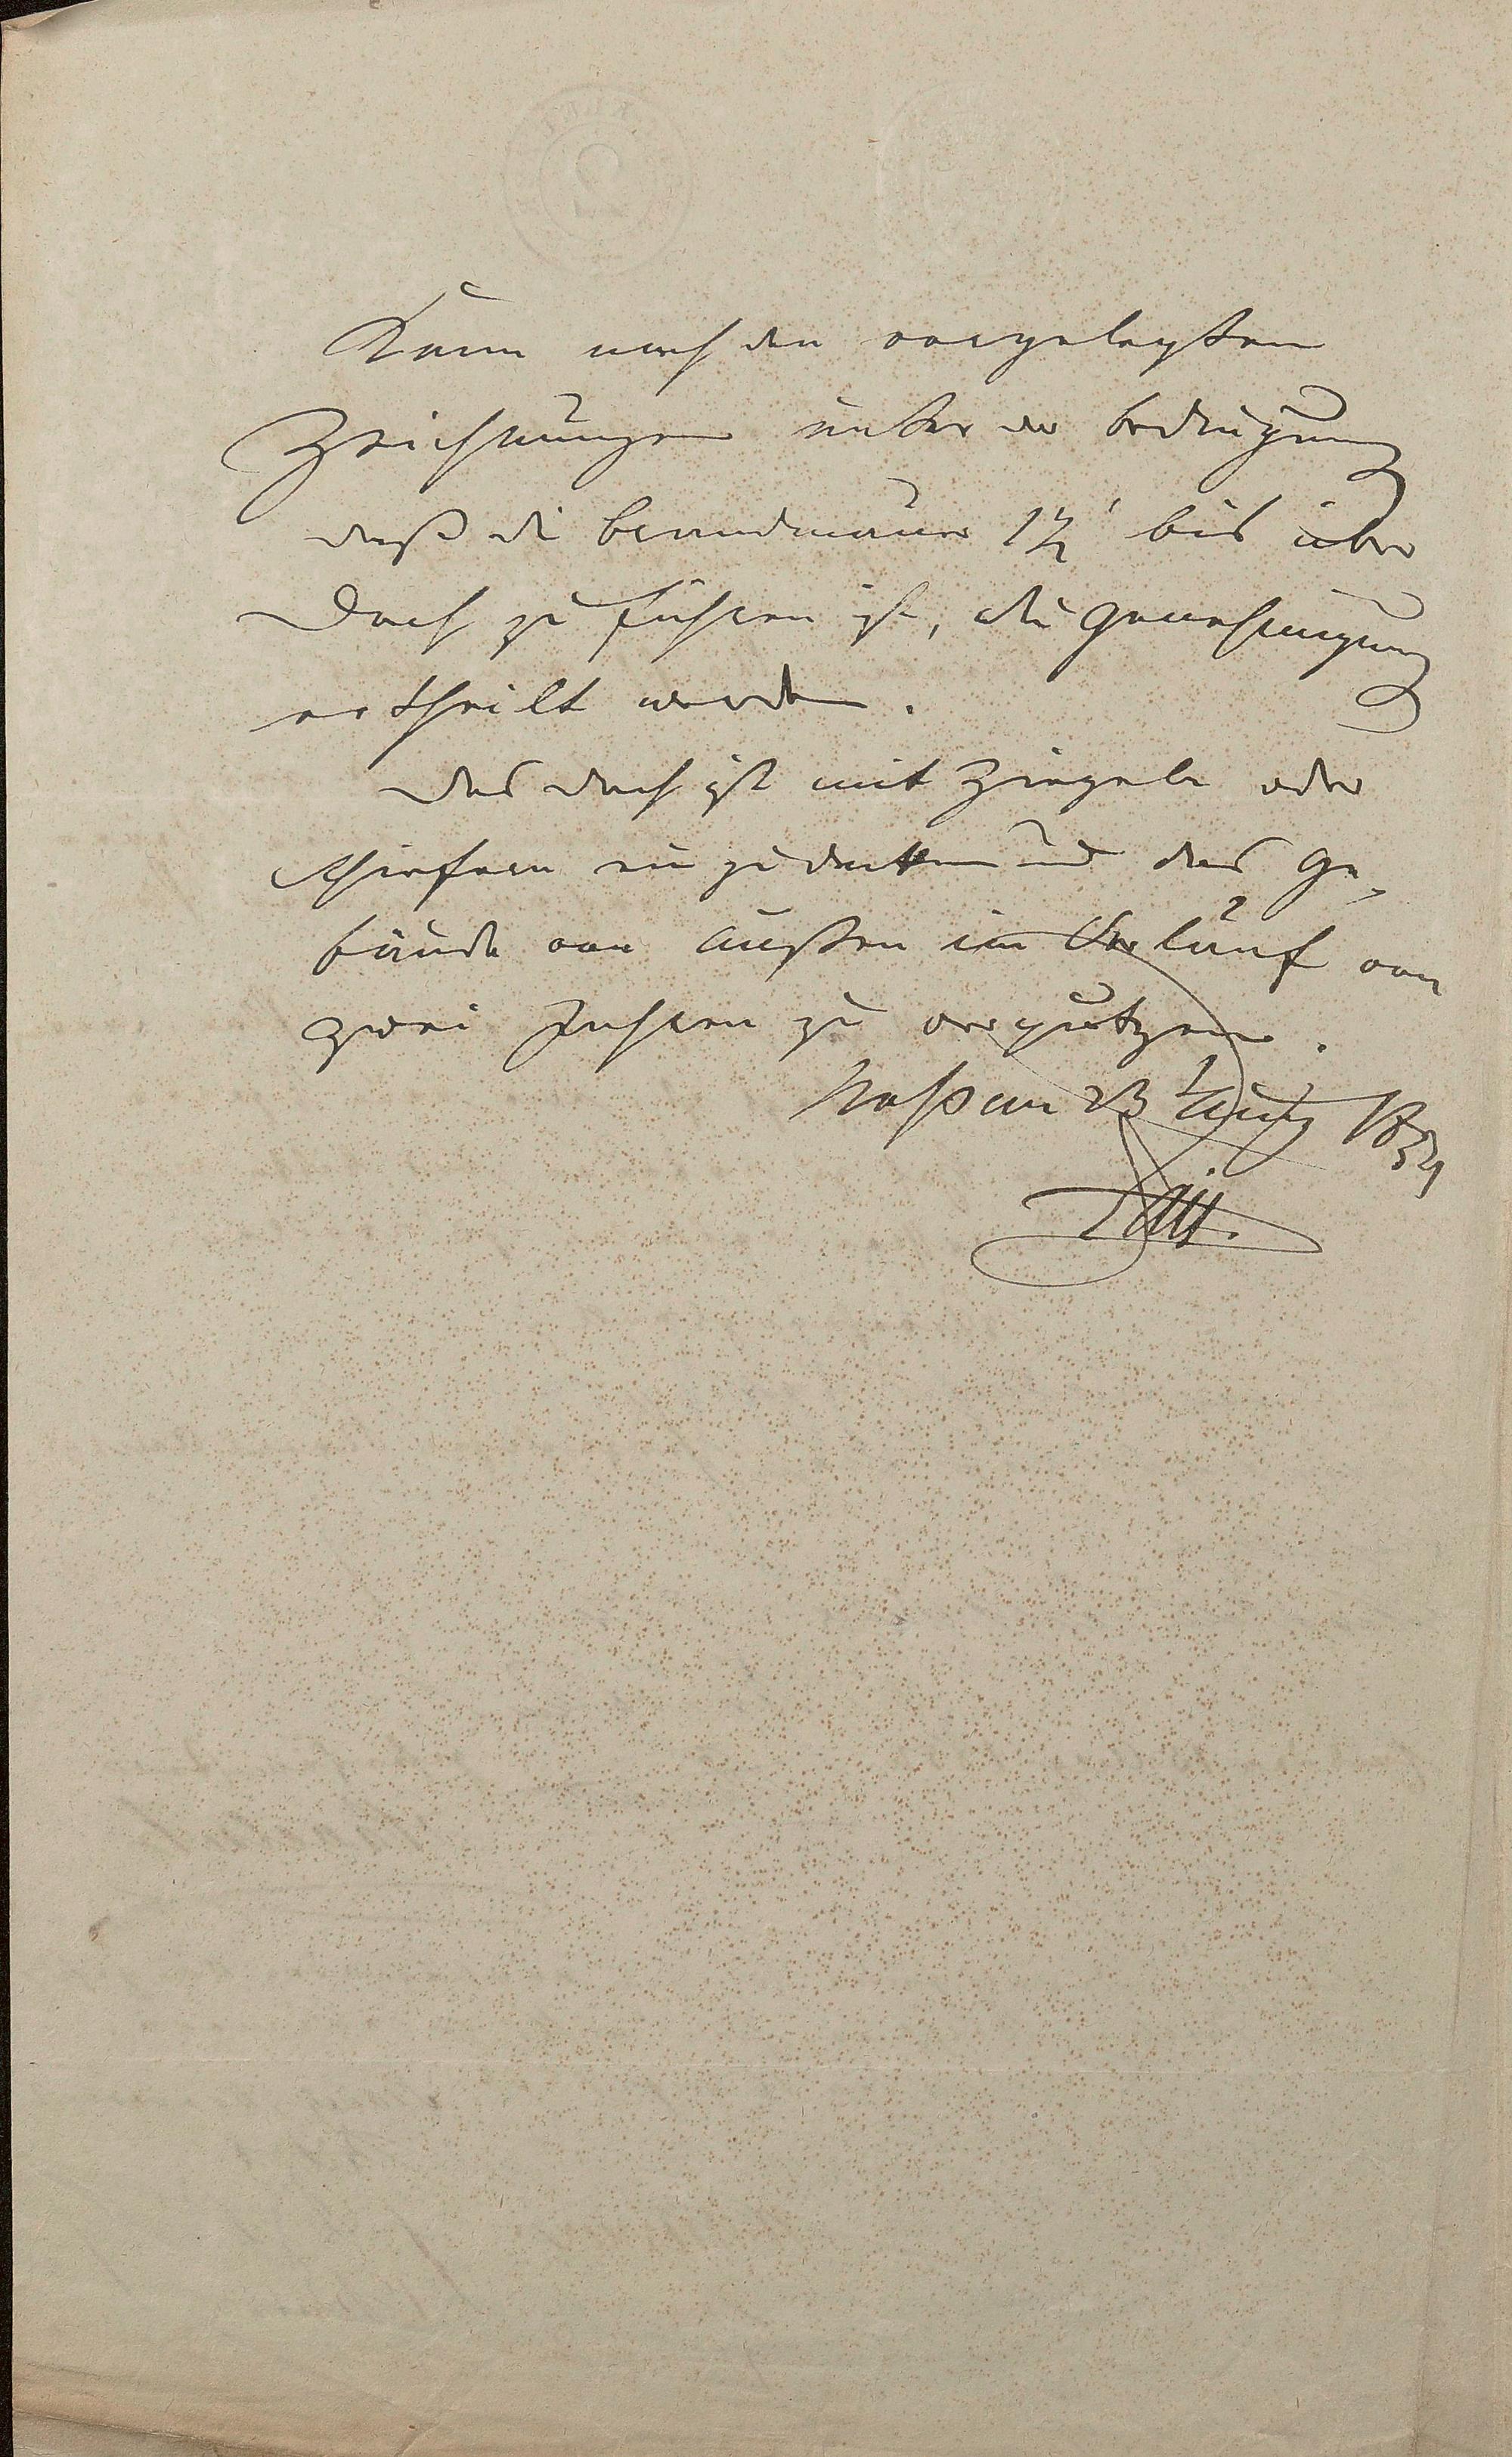 Kann nach den vorgelegten
Zeichnungen unter der Bedingung
daß die Brandmauer 1½' bis über
Dach zu führen ist, die Genehmigung
ertheilt werden.
Das Dach ist mit Ziegeln oder
Schiefern einzudecken und das Ge-
bäude von außen im Verlauf von
zwei Jahren zu verputzen.
23 Aug